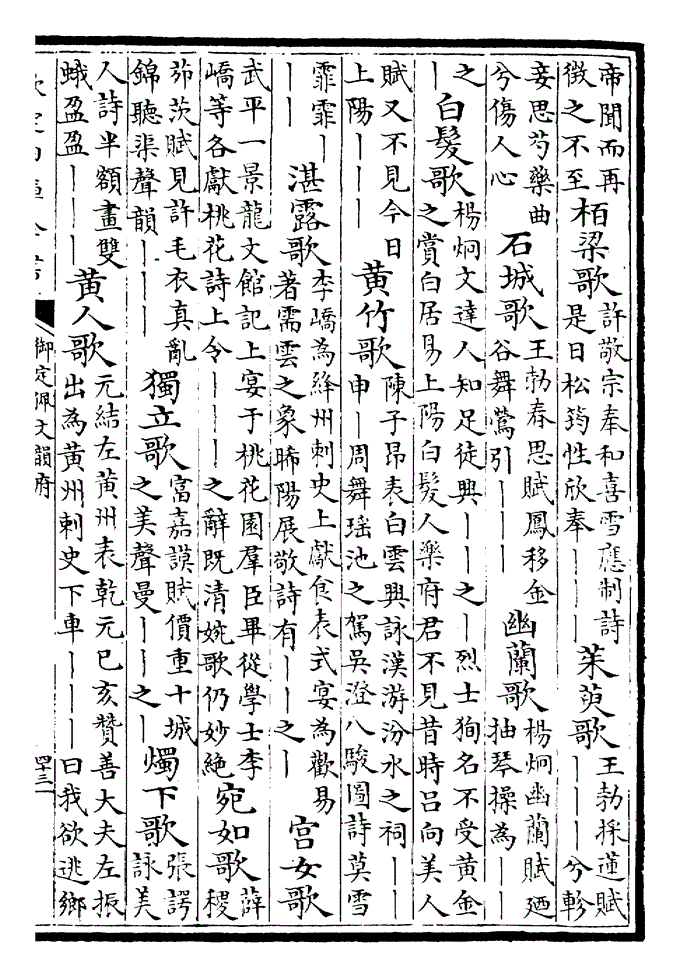 帝聞而再
徴之不至
柏梁歌
許敬宗奉和喜雪應制詩
是日松筠性欣奉｜｜｜
茱萸歌
王勃採蓮賦
｜｜｜兮軫
妾思芍藥曲
兮傷人心
石城歌
王勃春思賦鳳移金
谷舞鶯引｜｜｜
幽蘭歌
楊炯幽蘭賦廼
抽琴操為｜｜
之
｜
白髮歌
楊炯文達人知足徒興｜｜｜之｜烈士狥名不受黄金
之賞白居易上陽白髮人樂府君不見昔時吕向美人
賦又不見今日
上陽｜｜｜
黄竹歌
陳子昂表白雲興詠漢游汾水之祠｜｜
申｜周舞瑶池之駕吴澄八駿圖詩莫雪
霏霏｜
｜｜
湛露歌
李嶠為絳州刺史上獻食表式宴為歡易
著需雲之象晞陽展敬詩有｜｜之｜
宫女歌
武平一景龍文館記上宴于桃花園羣臣畢從學士李
嶠等各獻桃花詩上令｜｜｜｜之辭既清婉歌仍妙絶
宛如歌
薛
稷
茆茨賦見許毛衣真亂
錦聽渠聲韻｜｜｜
獨立歌
富嘉謨賦價重十城
之美聲曼｜｜之｜
燭下歌
張諤
詠美
人詩半額畫雙
蛾盈盈｜｜｜｜
黄人歌
元結左黄州表乾元已亥贊善大夫左振
出為黄州刺史下車｜｜｜曰我欲逃鄉
欽定四庫全書
御定佩文韻府
四十三